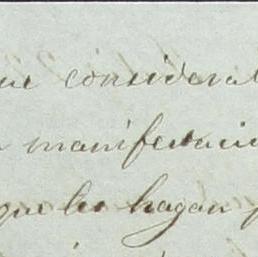 que considerat
manifestacio
que les hagan p